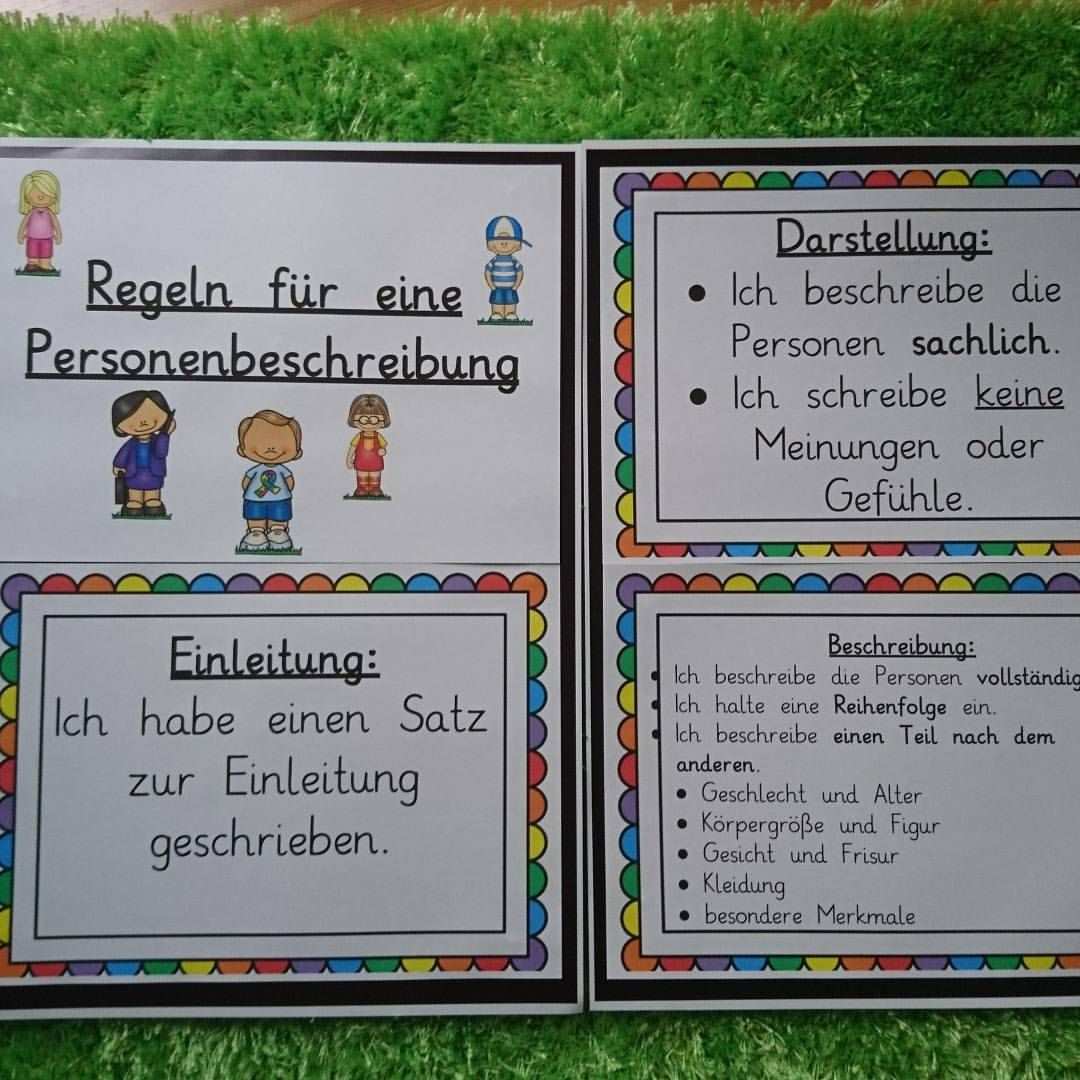 Regeln für eine
Personenbeschreibung
Einleitung:
Ich habe einen Satz
zur Einleitung
geschrieben.
Darstellung:
• Ich beschreibe die
Personen sachlich.
• Ich schreibe keine
Meinungen oder
Gefühle.
Beschreibung:
• Ich beschreibe die Personen vollständig
• Ich halte eine Reihenfolge ein.
• Ich beschreibe einen Teil nach dem
anderen.
• Geschlecht und Alter
• Körpergröße und Figur
• Gesicht und Frisur
• Kleidung
• besondere Merkmale